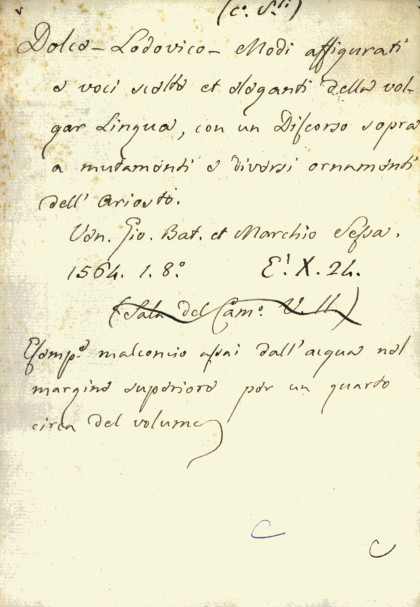 (c. S.ti)
Dolce - Lodovico - Modi affigurati
e voci scelte et eleganti della vol-
gar Lingua, con un Discorso sopra
a mutamenti e diversi ornamenti
dell' Ariosto.
Ven. Gio. Bat. et Marchio Sessa.
1564. 1. 8.° E! X. 24.
(Sala del Cam.°
Esemp.e malconcio assai dall'acqua nel
margine superiore per un quarto
circa del volume)
C
C